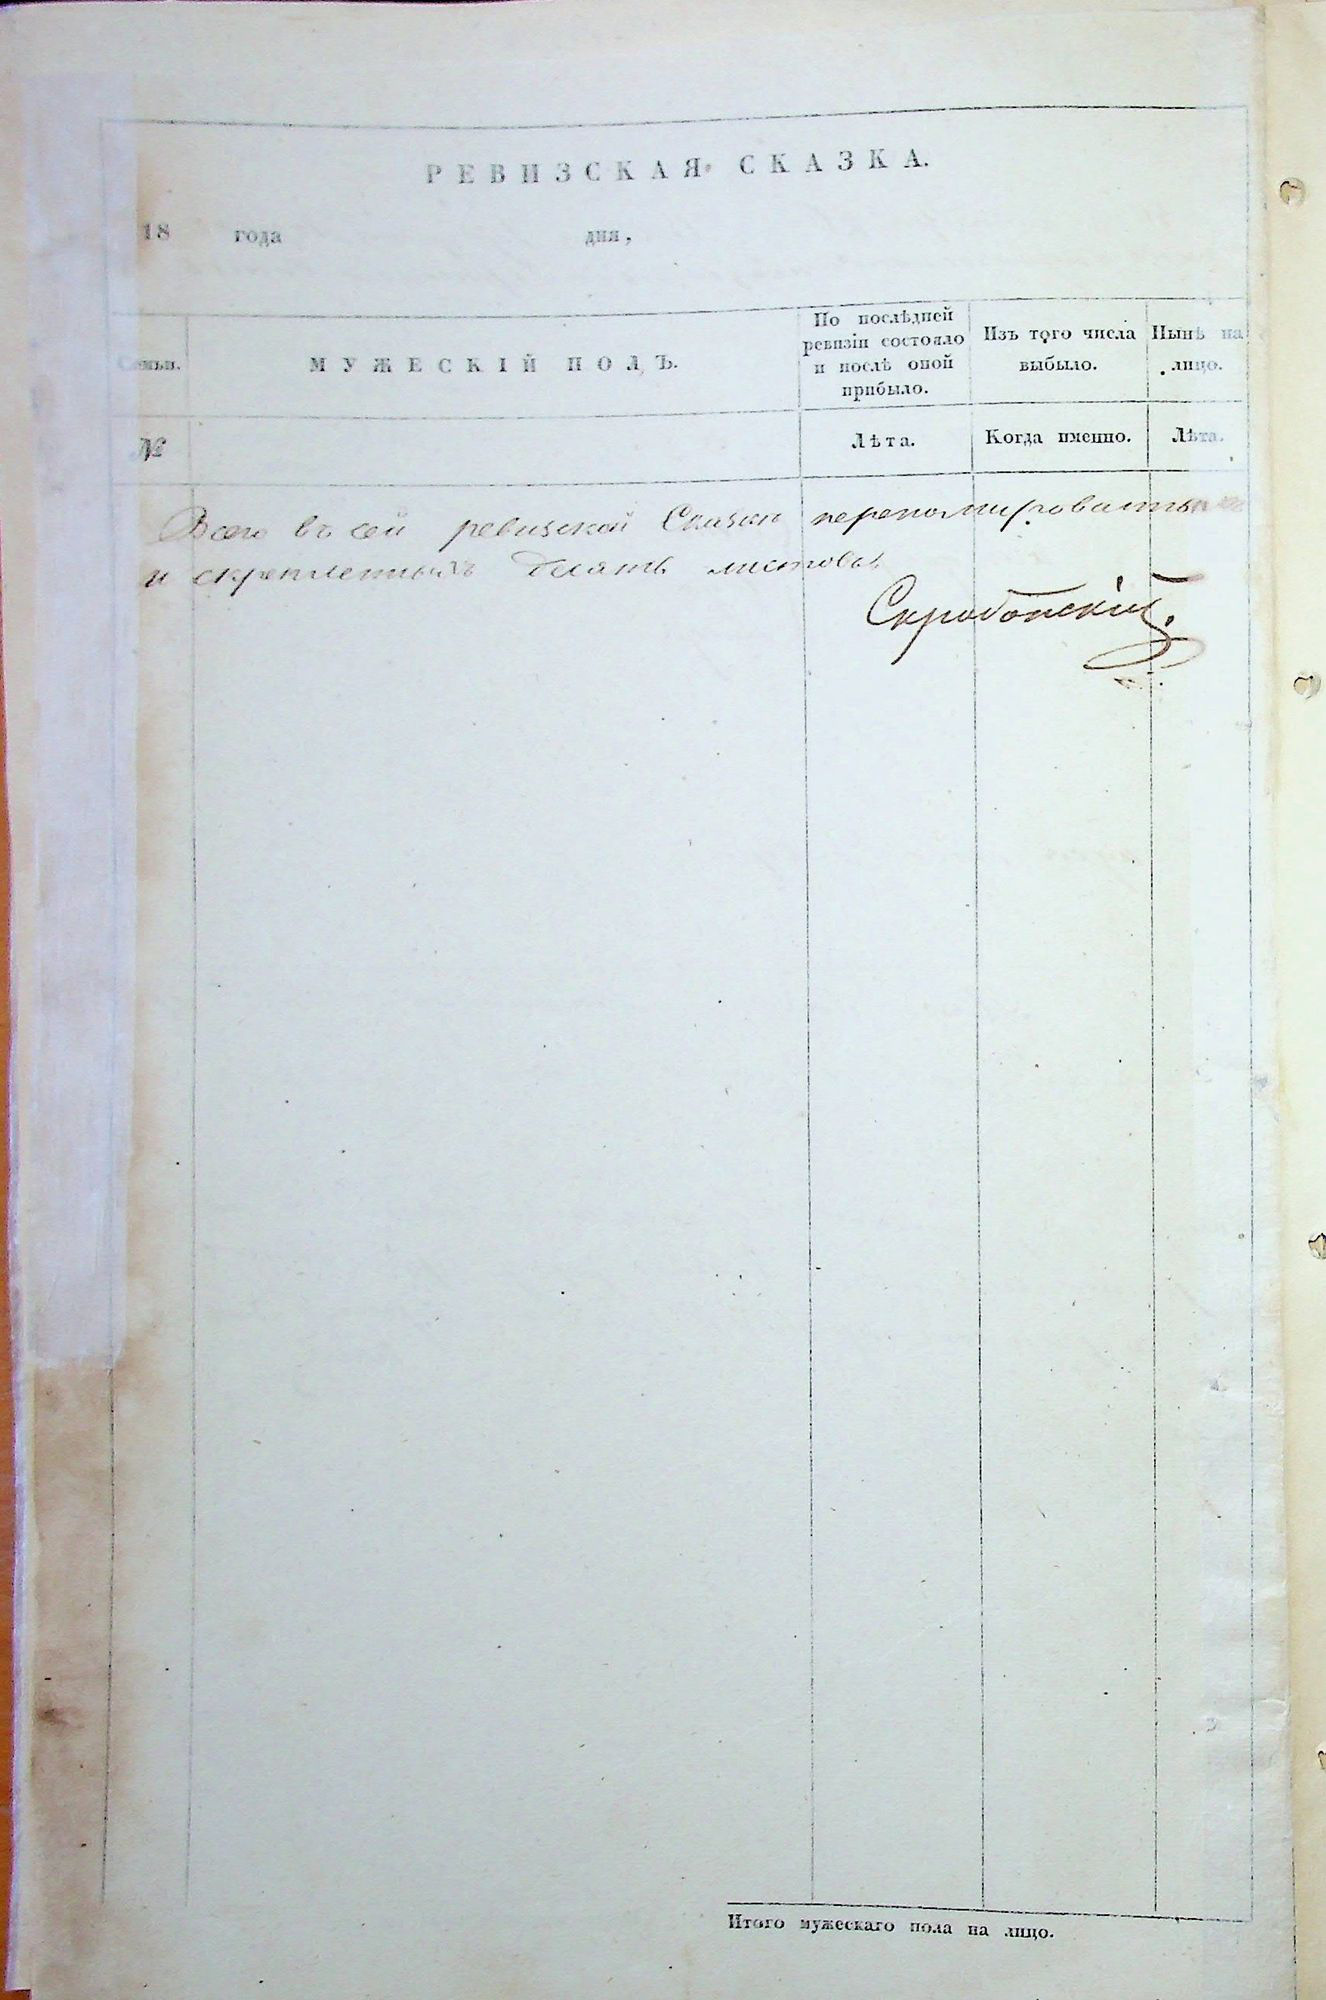 РЕВИЗСКАЯ СКАЗКА.
18 года дня,
Семьи.
МУЖЕСКІЙ ПОЛЪ.
По послѣдней
ревизіи состояло
и послѣ оной
прибыло.
Изъ того числа
выбыло.
Нынѣ на
лицо.
№
Лѣта.
Когда именно.
Лѣта.
Всего въ сей ревизской Сказки переномированных
и скрепленныхъ десять листовъ.
Скробонскій.
Итого мужескаго пола на лицо.